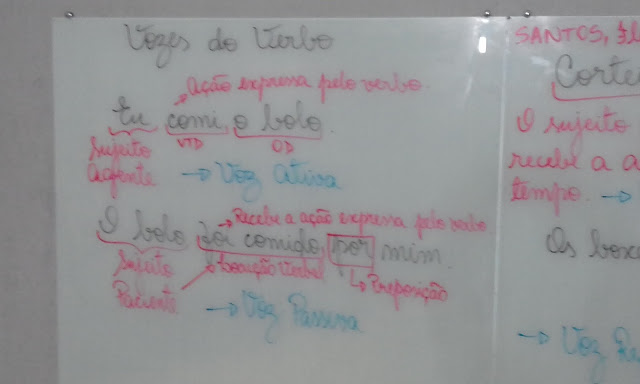 Vozes do Verbo
→ Ação expressa pelo verbo.
Eu comi o bolo.
Sujeito VTD OD
Agente → Voz Ativa
→ Recebe a ação expressa pelo verbo.
O bolo foi comido por mim.
Sujeito → Locução Verbal ↳ Preposição
Paciente
→ Voz Passiva
SANTOS,
Corte
O sujeito
recebe a a
tempo. →
Os boxe
→ Voz Re